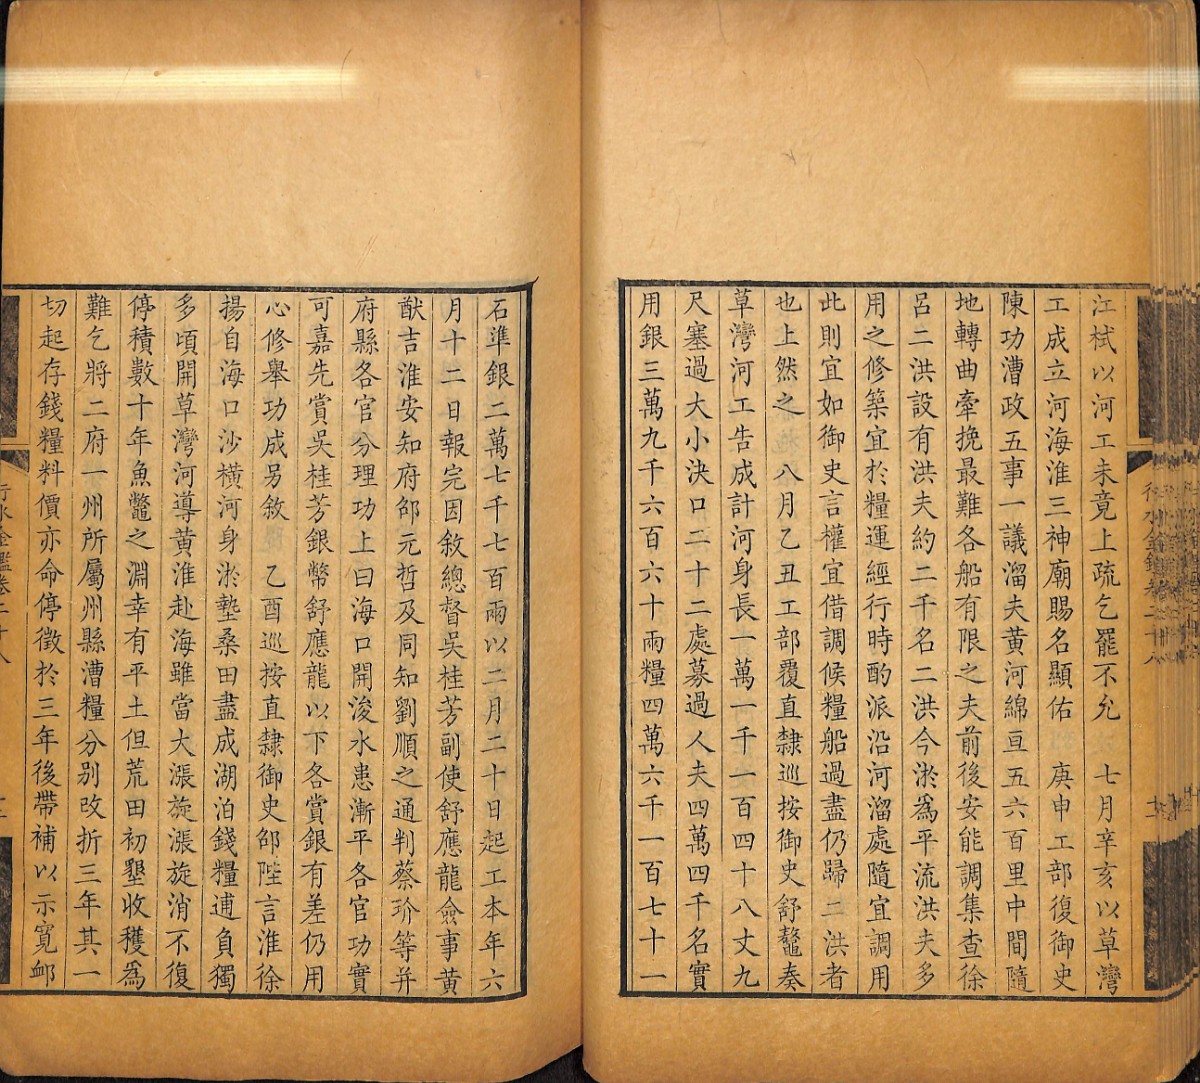 江栻以河工未竟上疏乞罷不允　七月辛亥以草灣
工成立河海淮三神廟賜名顯佑　庚申工部復御史
陳功漕政五事一議溜夫黃河綿亘五六百里中間隨
地轉曲牽挽最難各船有限之夫前後安能調集查徐
呂二洪設有洪夫約二千名二洪今淤爲平流洪夫多
用之修築宜於糧運經行時酌派沿河溜處隨宜調用
此則宜如御史言權宜借調候糧船過盡仍歸二洪者
也上然之　八月乙丑工部覆直隸巡按御史舒鼇奏
草灣河工告成計河身長一萬一千一百四十八丈九
尺塞過大小決口二十二處募過人夫四萬四千名實
用銀三萬九千六百六十兩糧四萬六千一百七十一
行水金鑑卷二十八
石準銀二萬七千七百兩以二月二十日起工本年六
月十二日報完因敘總督吳桂芳副使舒應龍僉事黃
猷吉淮安知府邵元哲及同知劉順之通判蔡玠等并
府縣各官分理功上曰海口開浚水患漸平各官功實
可嘉先賞吳桂芳銀幣舒應龍以下各賞銀有差仍用
心修舉功成另敘　乙酉巡按直隸御史邵陛言淮徐
揚自海口沙橫河身淤墊桑田盡成湖泊錢糧逋負獨
多頃開草灣河導黃淮赴海雖當大漲旋漲旋消不復
停積數十年魚鼈之淵幸有平土但荒田初墾收穫爲
難乞將二府一州所屬州縣漕糧分別改折三年其一
切起存錢糧料價亦命停徵於三年後帶補以示寬䘏
行水金鑑卷二十八